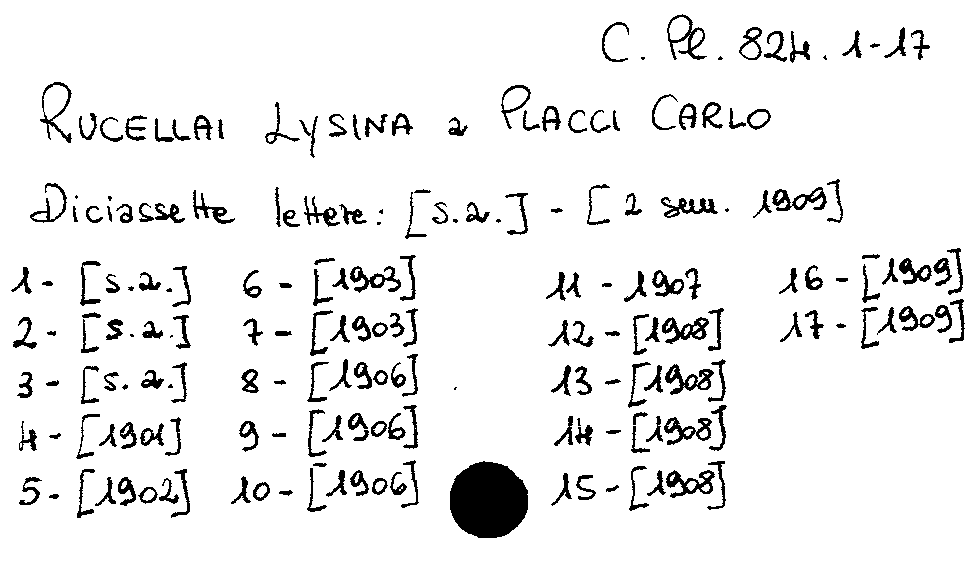 C. Pl. 824. 1-17
RUCELLAI LYSINA a PLACCI CARLO
Diciassette lettere: [s.a.] - [2 sem. 1909]
1 - [s.a.] 6 - [1903] 11 - 1907 16 - [1909]
2 - [s.a.] 7 - [1903] 12 - [1908] 17 - [1909]
3 - [s.a.] 8 - [1906] 13 - [1908]
4 - [1901] 9 - [1906] 14 - [1908]
5 - [1902] 10 - [1906] 15 - [1908]